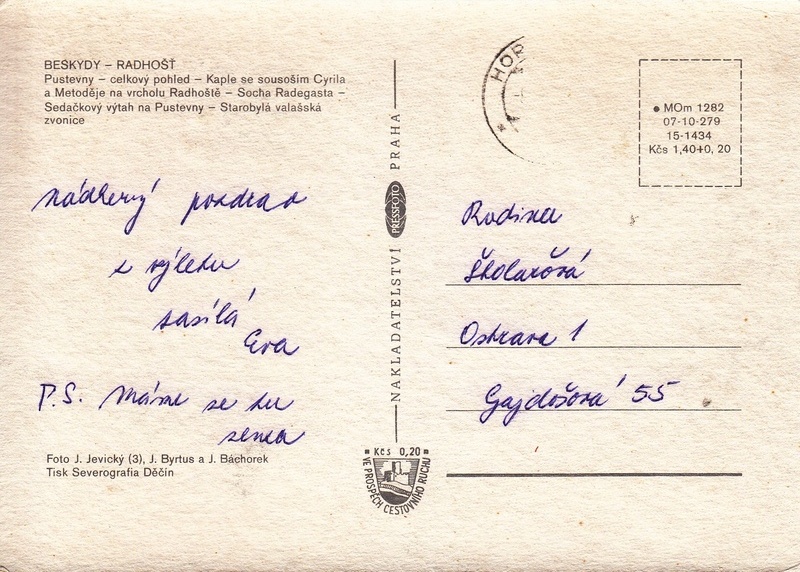 BESKYDY – RADHOŠŤ
Pustevny – celkový pohled – Kaple se sousoším Cyrila
a Metoděje na vrcholu Radhoště – Socha Radegasta –
Sedačkový výtah na Pustevny – Starobylá valašská
zvonice
nádherný pozdrav
z výletu
zasílá
Eva
P.S. Máme se tu
Foto J. Jevický (3), J. Byrtus a J. Báchorek
Tisk Severografia Děčín
NAKLADATELSTVÍ PRESSFOTO PRAHA
Kčs 0,20
VE PROSPĚCH CESTOVNÍHO RUCHU
HOR
MOm 1282
07-10-279
15-1434
Kčs 1,40+0, 20
Rodina
Školařová
Ostrava 1
Gajdošová 55